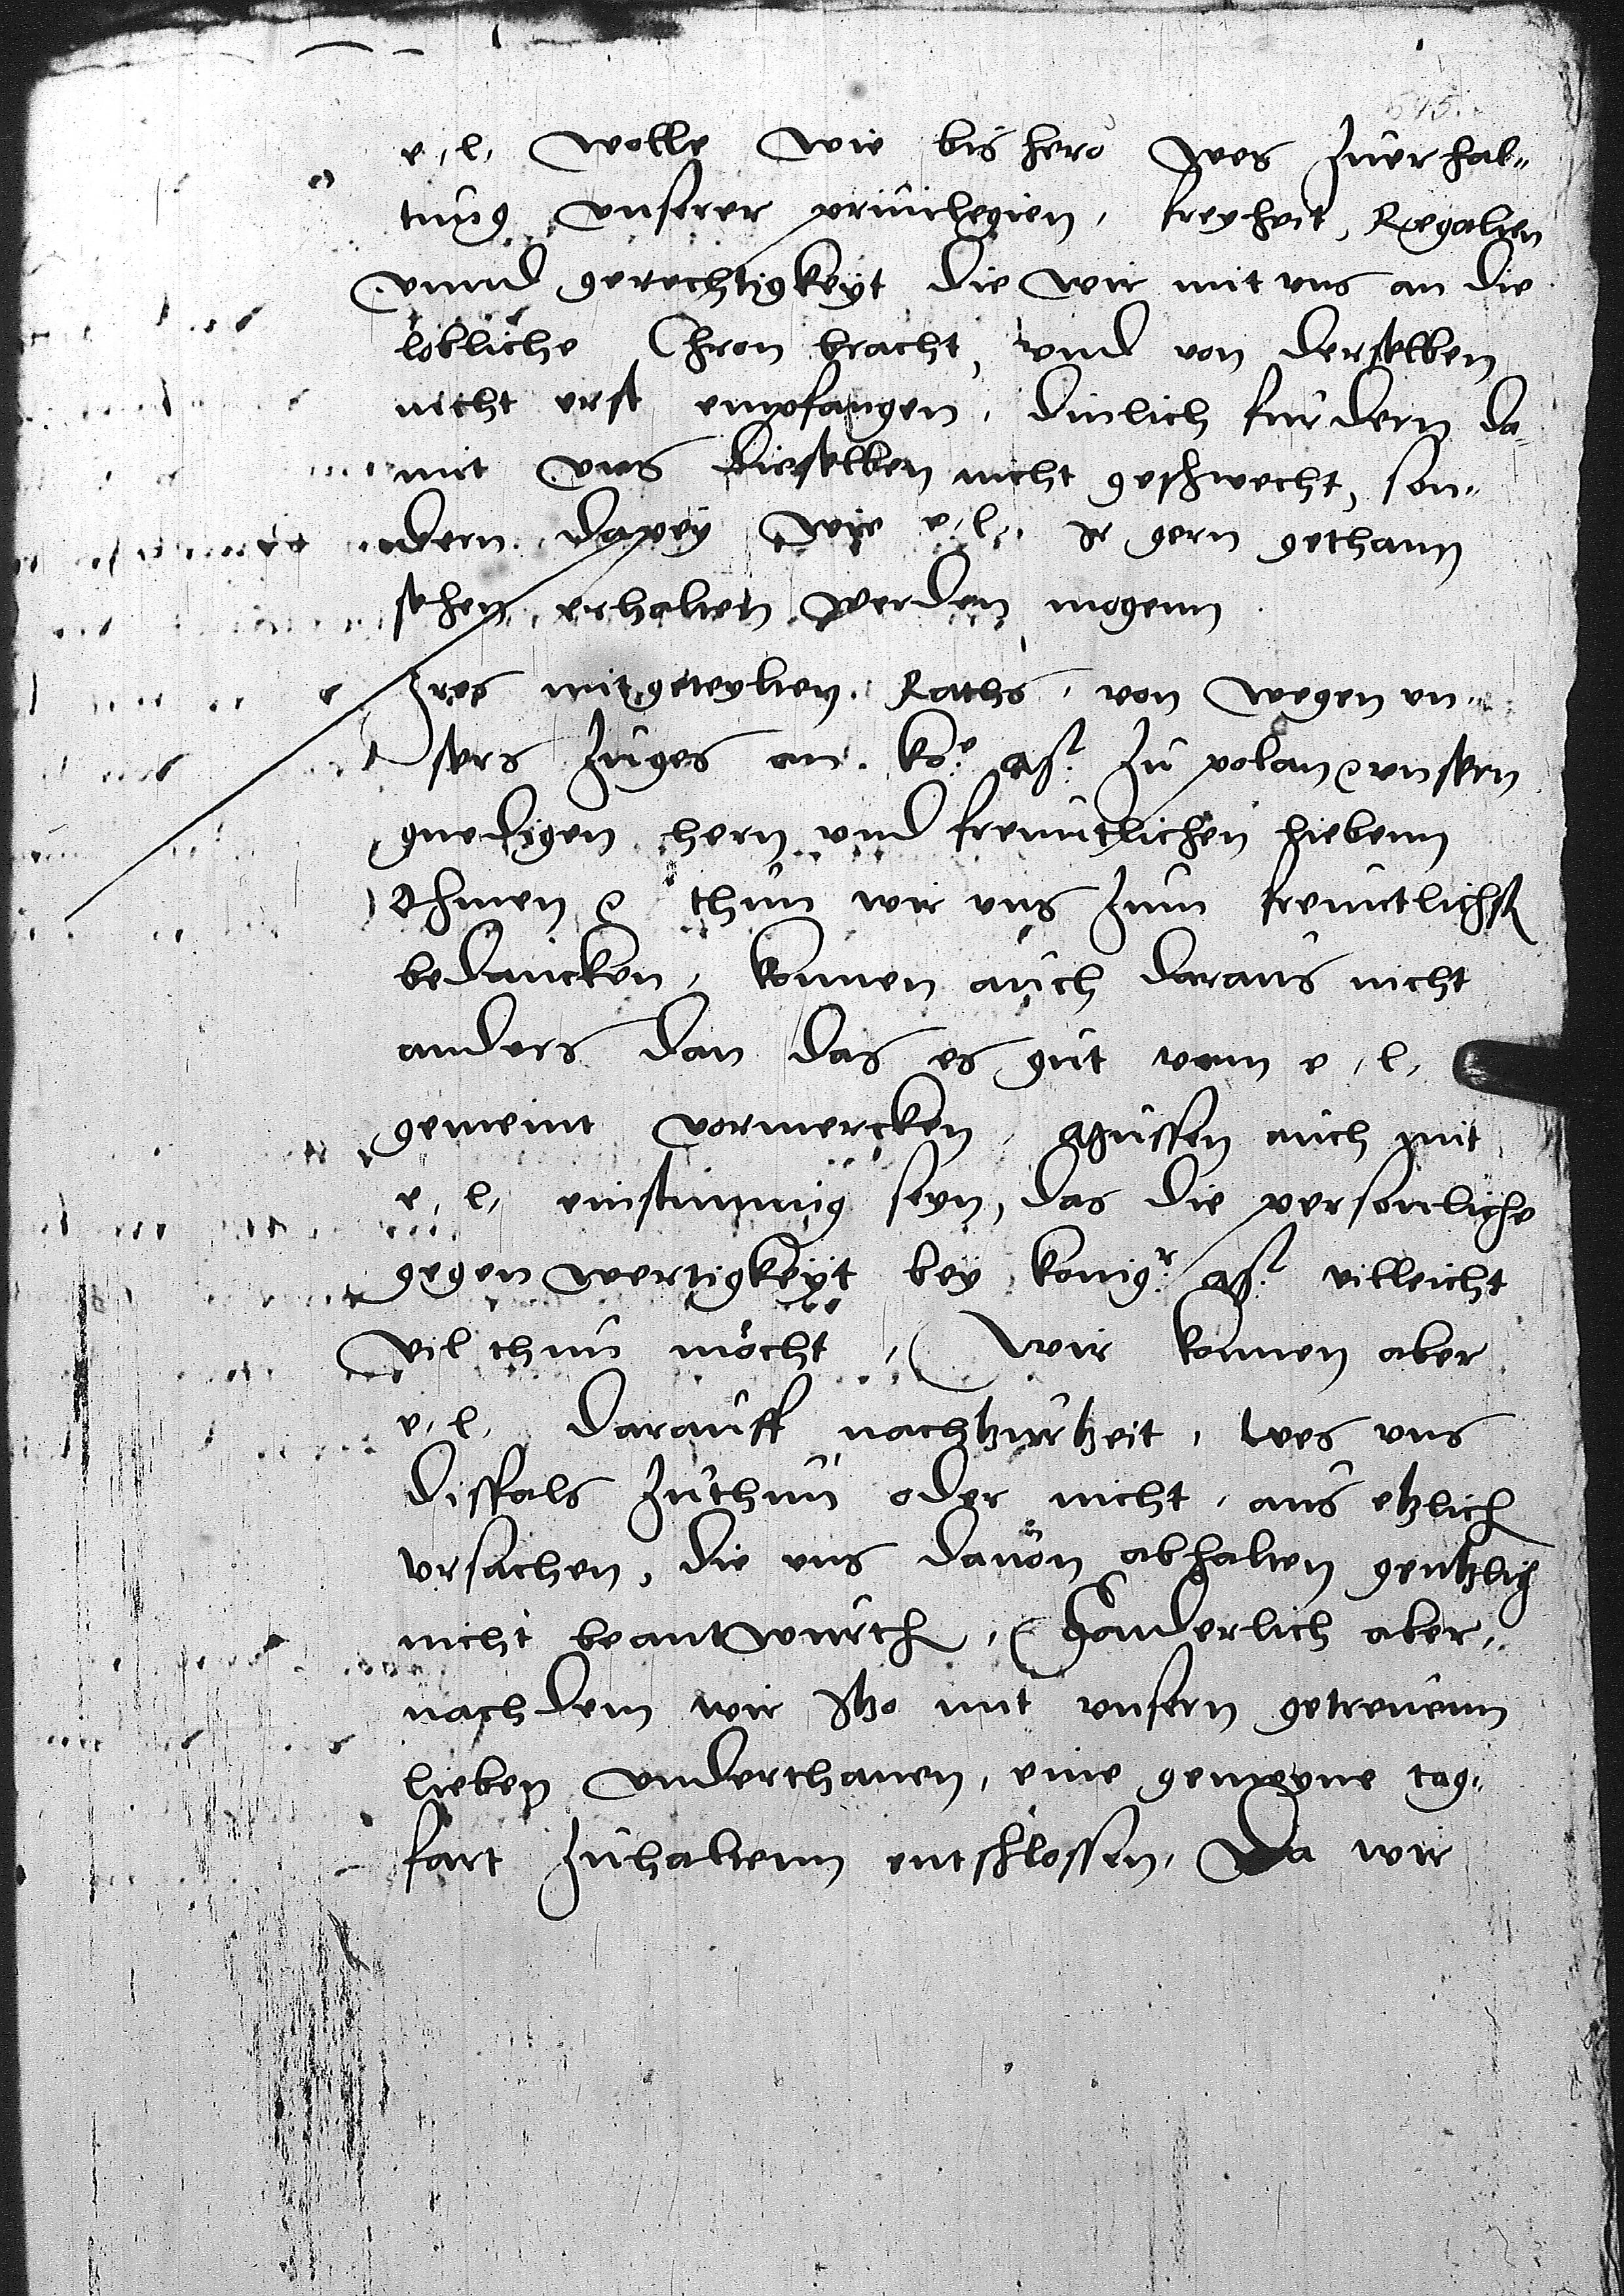 e, l, wolle wie bis hero wes zuerhal-
tung vnserer priuilegien, freyheit, Regalien
vnnd gerechtigkeyt die wir mit vns an die
löbliche Chron bracht, vnd von derselben
nicht erst empfangen, dinlich furdern da-
mit vns dieselben nicht geschwecht, son-
dern, dapey wie e, l, gern gethann
sehen, erhalten werden mogenn
Ires mitgeteylten Raths, von wegen vn-
sers zuges an ko.e Mt. zu polan vnsern
gnedigen hern vnd freuntlichen liebenn
Ohmen thun wir vns zum freuntlichst
bedancken, konnen auch daraus nicht
anders dan das es gut vom e, l,
gemeint vormercken, Mussen auch mit
e, l, einstimmig seyn, das die personliche
gegenwertigkeyt bey konig.r Mt. villeicht
vil thun möcht, Wir konnen aber
e, l, darauff nachzurzeit, wes vns
disfals zuthun oder nicht, aus etzlich
vrsachen, die vns dauon abhalten gentzlich
nicht beantwurth, Sonderlich aber,
nachdem wir itzo mit vnsern getreuenn
lieben vnderthanen, eine gemeyne tag-
fart zuhaltenn entschlossen, Da wir